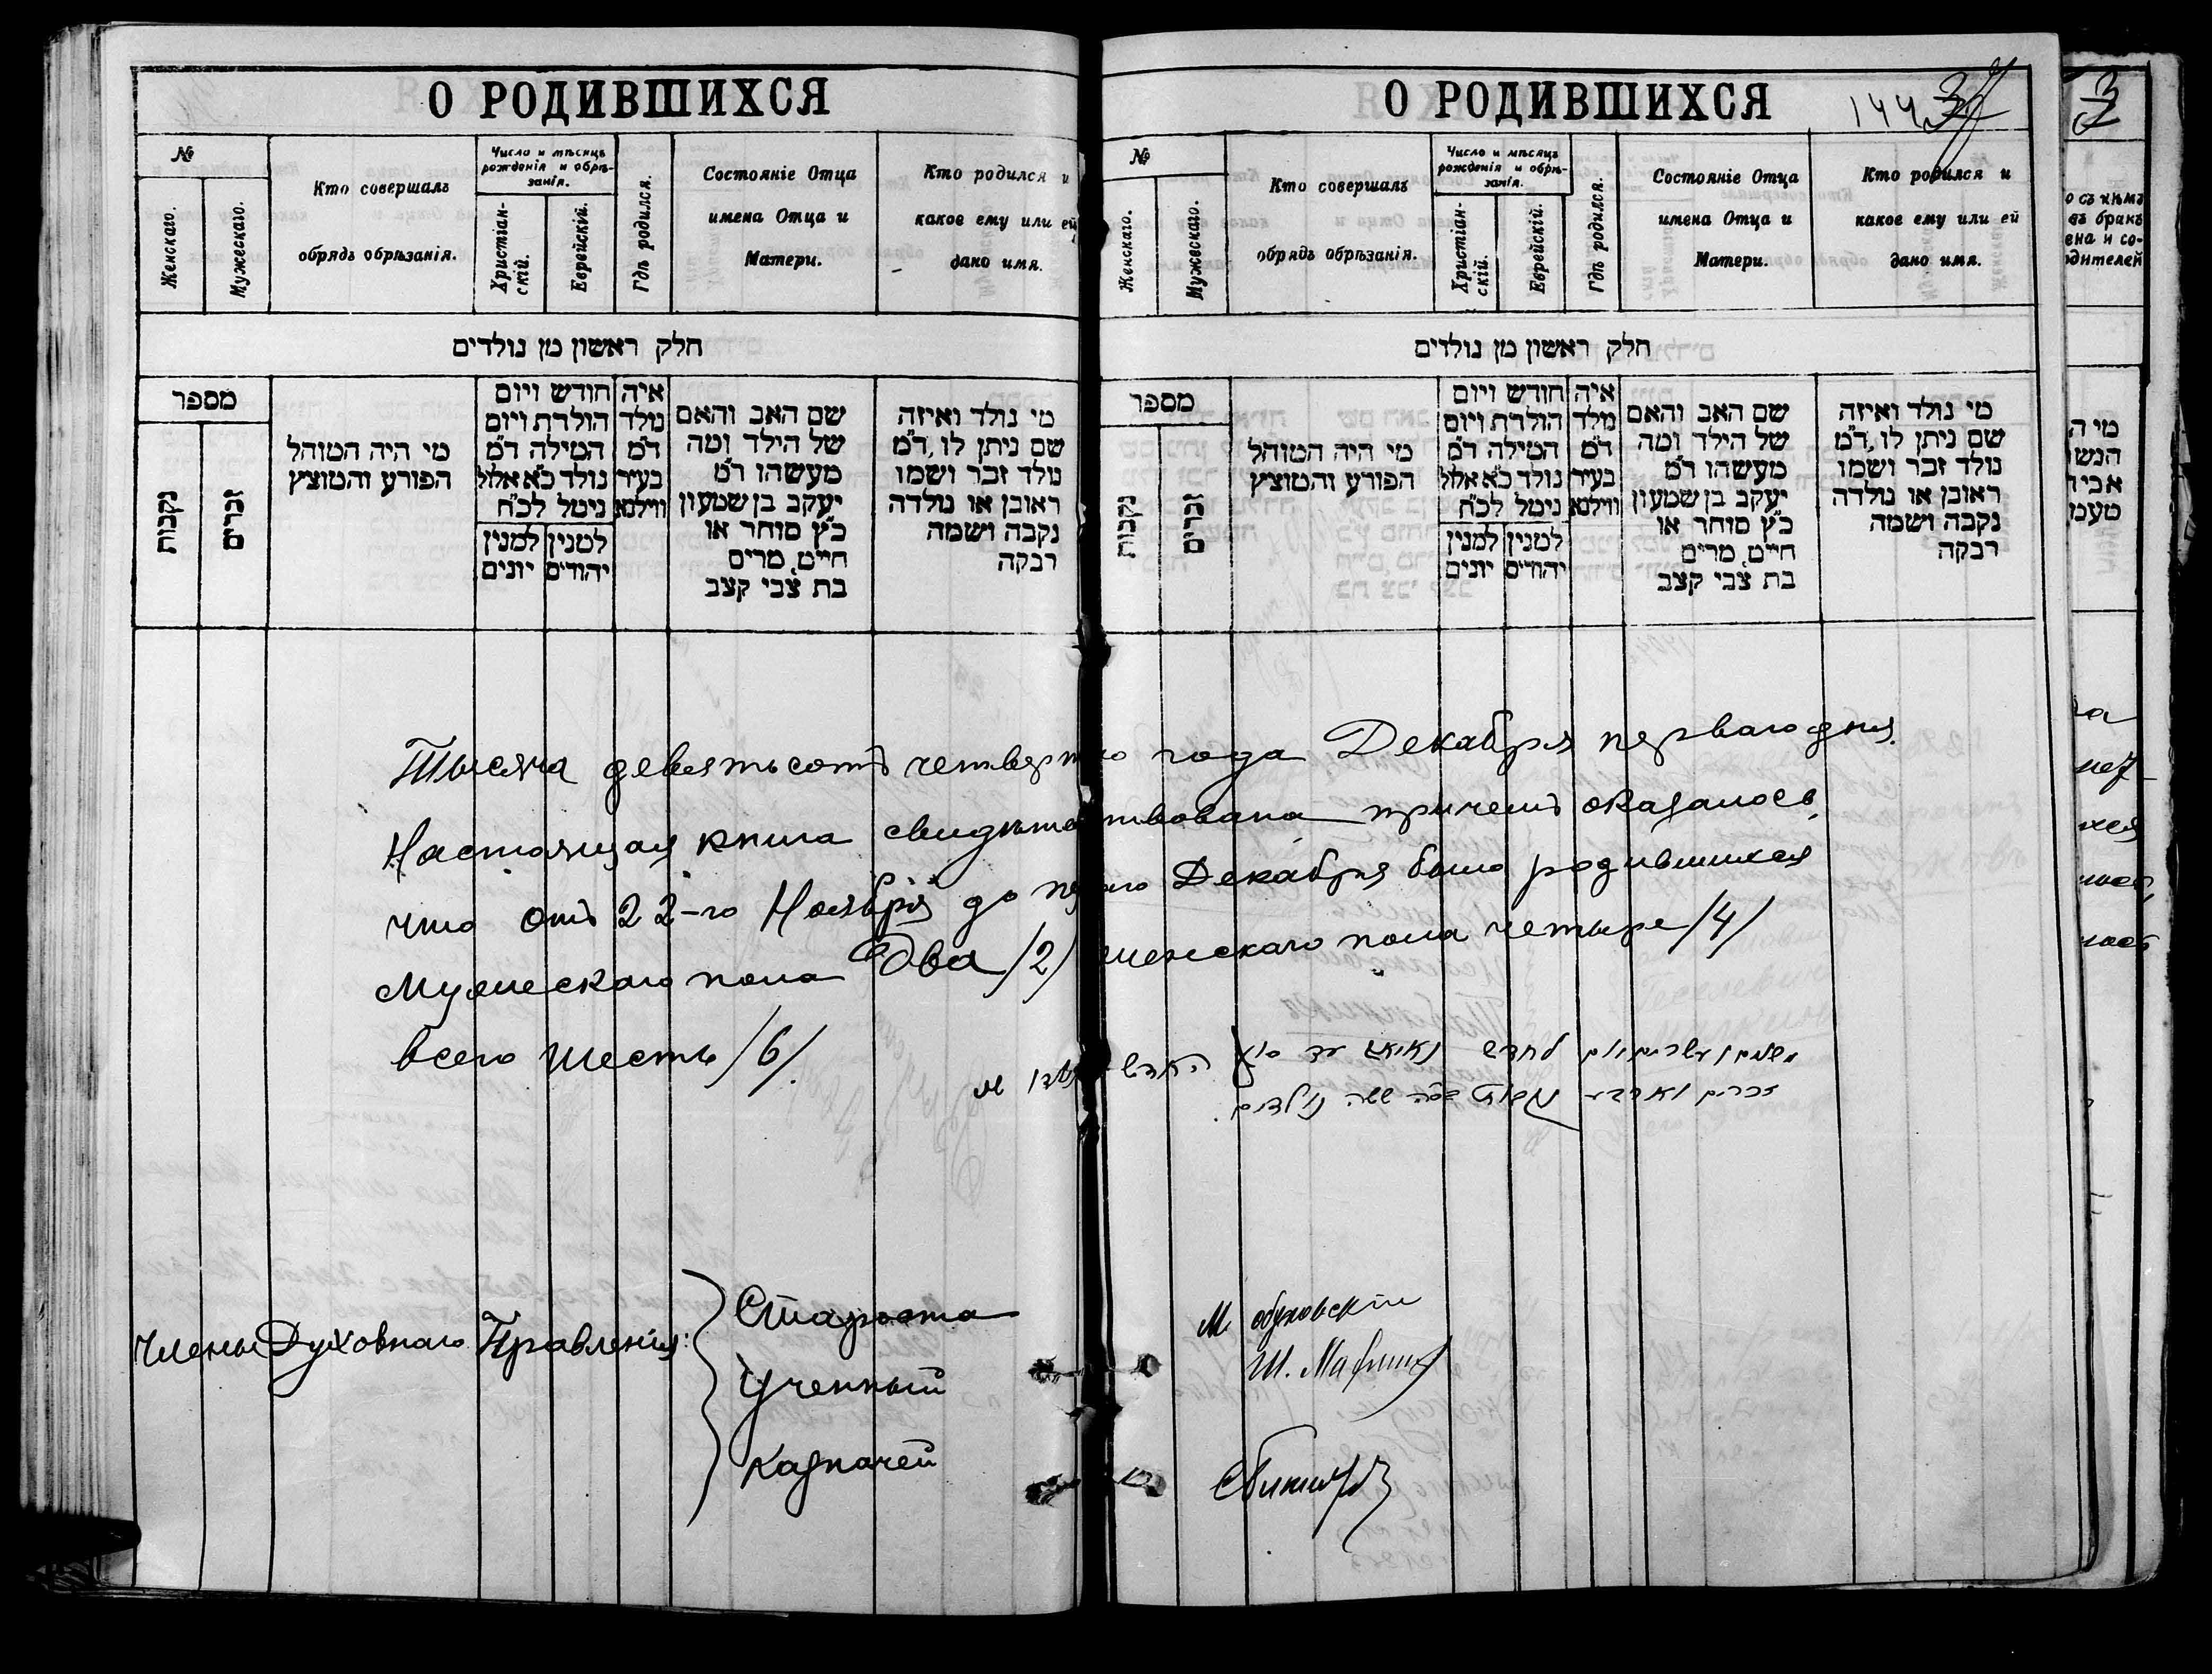 О РОДИВШИХСЯ
№
Женскаго.
Мужескаго.
Кто совершалъ
обрядъ обрѣзанія.
Число и мѣсяцъ
рожденія и обрѣ-
занія.
Христіан-
скій.
Еврейскій.
Гдѣ родился.
Состояніе Отца
имена Отца и
Матери.
Кто родился и
какое ему или ей
дано имя.
חלק ראשון מן נולדים
מספר
נקבות
זכרים
מי היה המוהל
הפורע והמוצץ
חודש ויום
הולדת ויום
המילה ד"מ
נולד כ"א אלול
ניטל לכ"ח
למנין
יונים
למנין
יהודים
איה
נולד
ד"מ
בעיר
ווילנא
שם האב והאם
של הילד ומה
מעשהו ד"מ
יעקב בן שמעון
כ"ץ סוחר או
חייט, מרים
בת צבי קצב
מי נולד ואיזה
שם ניתן לו, ד"מ
נולד זכר ושמו
ראובן או נולדה
נקבה ושמה
רבקה
О РОДИВШИХСЯ
144
№
Женскаго.
Мужескаго.
Кто совершалъ
обрядъ обрѣзанія.
Число и мѣсяцъ
рожденія и обрѣ-
занія.
Христіан-
скій.
Еврейскій.
Гдѣ родился.
Состояніе Отца
имена Отца и
Матери.
Кто родился и
какое ему или ей
дано имя.
חלק ראשון מן נולדים
מספר
נקבות
זכרים
מי היה המוהל
הפורע והמוצץ
חודש ויום
הולדת ויום
המילה ד"מ
נולד כ"א אלול
ניטל לכ"ח
למנין
יונים
למנין
יהודים
איה
נולד
ד"מ
בעיר
ווילנא
שם האב והאם
של הילד ומה
מעשהו ד"מ
יעקב בן שמעון
כ"ץ סוחר או
חייט, מרים
בת צבי קצב
מי נולד ואיזה
שם ניתן לו, ד"מ
נולד זכר ושמו
ראובן או נולדה
נקבה ושמה
רבקה
Тысяча девятьсотъ четвертаго года Декабря перваго дня.
Настоящая книга свидѣтельствована причемъ оказалось,
что отъ 22-го Ноября до Декабря было родившихся
Мужескаго пола Два /2/ женскаго пола четыре /4/
всего шесть /6/.
לחדש עד סוף החדש
זכרים וארבע נקבות ששה נולדים.
Члены Духовнаго Правленія:
Староста
Ученный
Казначей
М.
Ш.